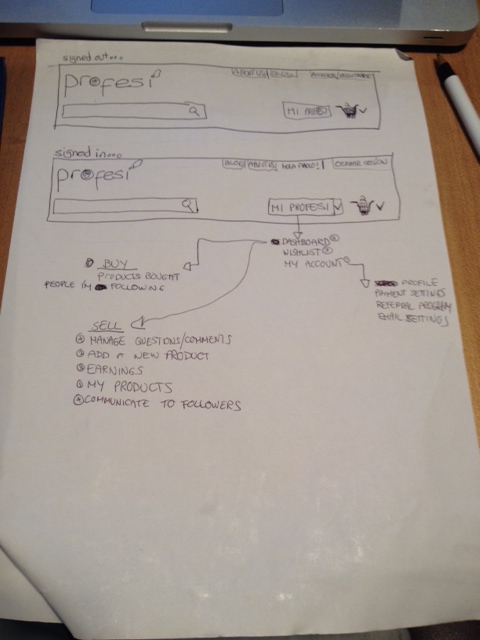 signed out...
profesi
MI
signed in...
profesi
BLOG HOLA PABLO! CERRAR SESION
MI PROFESI
DASHBOARD
WISHLIST
MY ACCOUNT
BUY
PRODUCTS BOUGHT
PEOPLE I'M FOLLOWING
PROFILE
PAYMENT SETTINGS
REFERRAL PROGRAM
EMAIL SETTINGS
SELL
MANAGE QUESTIONS/COMMENTS
ADD A NEW PRODUCT
EARNINGS
MY PRODUCTS
COMMUNICATE TO FOLLOWERS